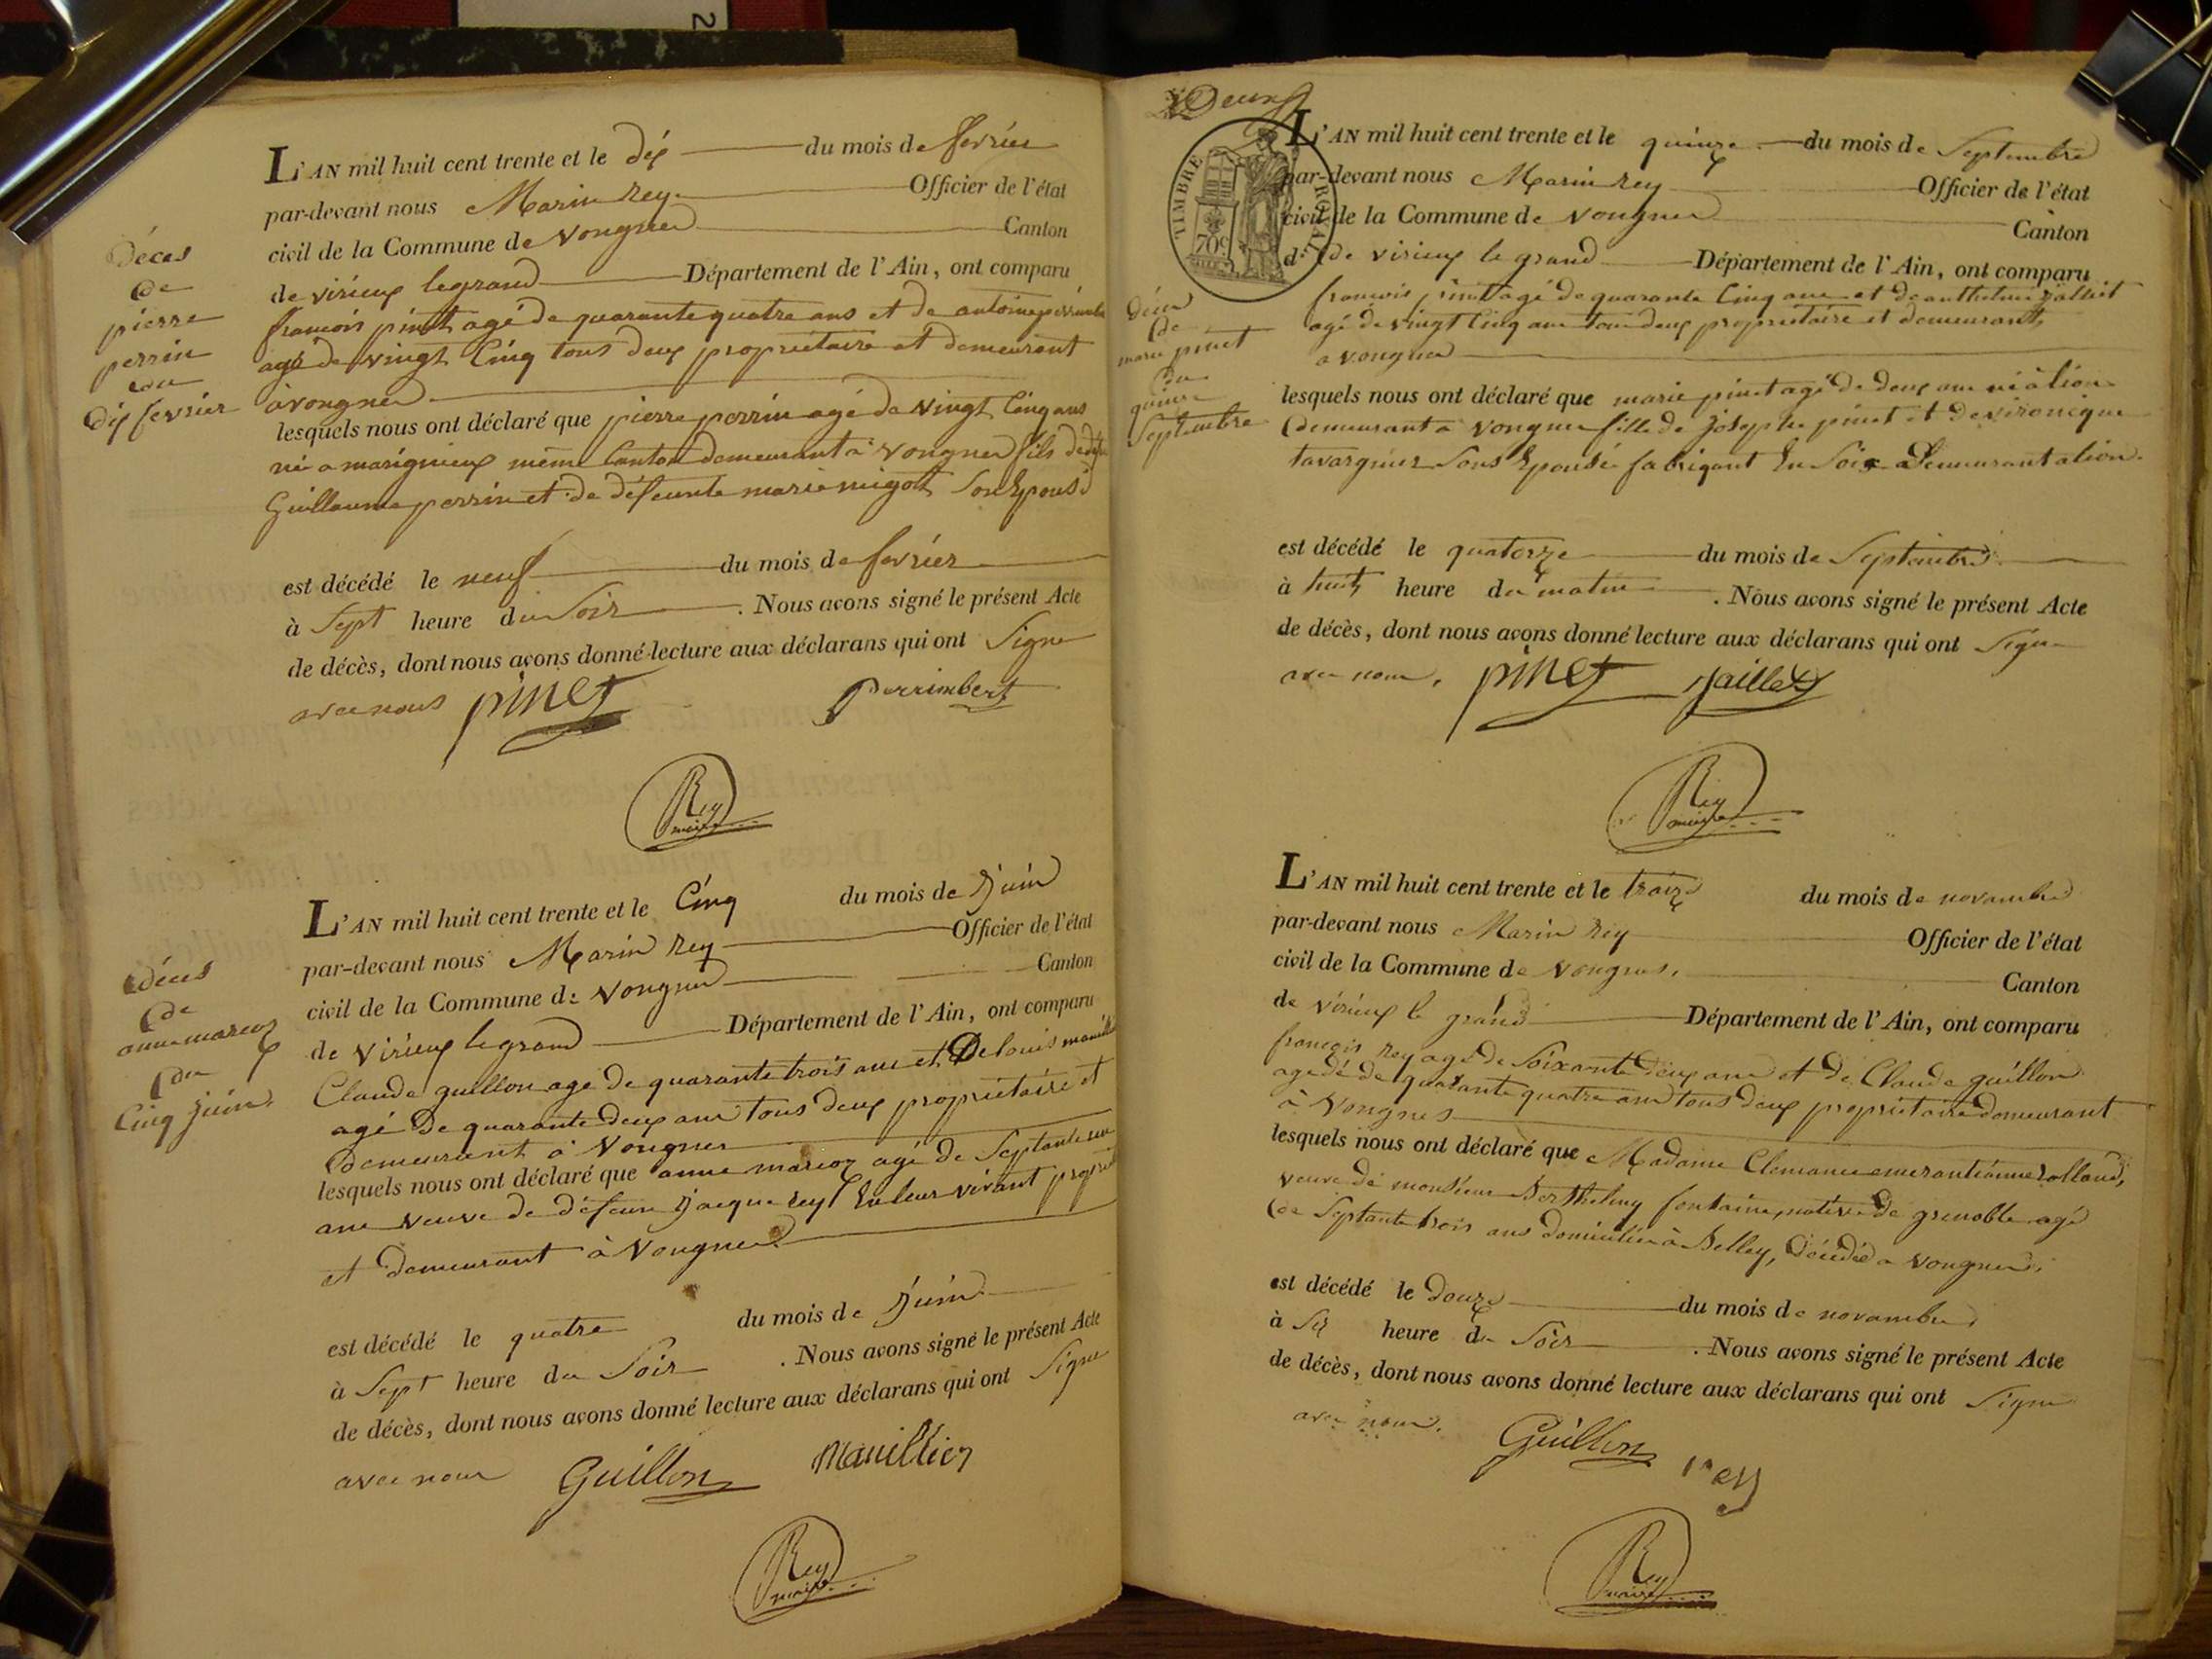 2
L'AN mil huit cent trente et le dix du mois de fevrier
par-devant nous Marin Rey Officier de l'état
civil de la Commune de vongnes Canton
de virieux legrand Département de l'Ain, ont comparu
francois pinet agé de quarante quatre ans et de antoine perrimbert
agé de vingt Cinq tous deux propriétaire et demeurant
à vongnes
lesquels nous ont déclaré que pierre perrin agé de vingt Cinq ans
né a marignieux même Canton demeurant à vongnes fils de
Guillaume perrin et de défeunte marie migot Son Epouse
est décédé le neuf du mois de fevrier
à Sept heure du Soir. Nous avons signé le présent Acte
de décès, dont nous avons donné lecture aux déclarans qui ont Signe
avec nous pinet perrimbert
Rey
maire
Déces
de
pierre
perrin
du
dix fevrier
L'AN mil huit cent trente et le Cinq du mois de Juin
par-devant nous Marin Rey Officier de l'état
civil de la Commune de vongnes Canton
de virieux legrand Département de l'Ain, ont comparu
Claude guillon agé de quarante trois ans et De louis
agé De quarante deux ans tous deux propriétaire et
demeurant à Vongnes
lesquels nous ont déclaré que anne marion agé de Septante
ans veuve de défeun Jaque rey En leur vivant
et demeurant à Vongnes
est décédé le quatre du mois de Juin
à Sept heure du Soir. Nous avons signé le présent Acte
de décès, dont nous avons donné lecture aux déclarans qui ont Signe
avec nous Guillon Mauillier
Rey
maire
déces
de
anne marion
du
Cinq Juin
Deux
TIMBRE ROYAL
70c
L'AN mil huit cent trente et le quinze du mois de Septembre
par-devant nous Marin rey Officier de l'état
civil de la Commune de vongnes Canton
de virieux le grand Département de l'Ain, ont comparu
francois pinet agé de quarante Cinq ans et de anthelme jaillet
agé de vingt Cinq ans tous deux propriétaire et demeurant
a vongnes
lesquels nous ont déclaré que marie pinet agé de deux ans né à lion
demeurant a vongnes fille de Joseph pinet et de vironique
tavargnier Sons Epouse fabriqant En Soix Demeurant a lion
est décédé le quatorze du mois de Septembre
à huit heure du matin. Nous avons signé le présent Acte
de décès, dont nous avons donné lecture aux déclarans qui ont Signe
avec nous. pinet Jaillet
Rey
maire
de
marie pinet
du
quinze
Septembre
L'AN mil huit cent trente et le traize du mois de novambre
par-devant nous Marin Rey Officier de l'état
civil de la Commune de vongnes. Canton
de virieux le grand Département de l'Ain, ont comparu
francois rey agé de Soixante deux ans et de Claude guillon
agé de quarante quatre ans tous deux propriétaire demeurant
à Vongnes
lesquels nous ont déclaré que Madame Clemance rolland,
veuve de monsieur Berthelmy fontaine, native de grenoble agé
de Septante trois ans domiciliée à Belley, Décédée a vongnes.
est décédé le douze du mois de novambre
à Six heure du Soir. Nous avons signé le présent Acte
de décès, dont nous avons donné lecture aux déclarans qui ont Signe
avec nous. Guillon rey
Rey
maire